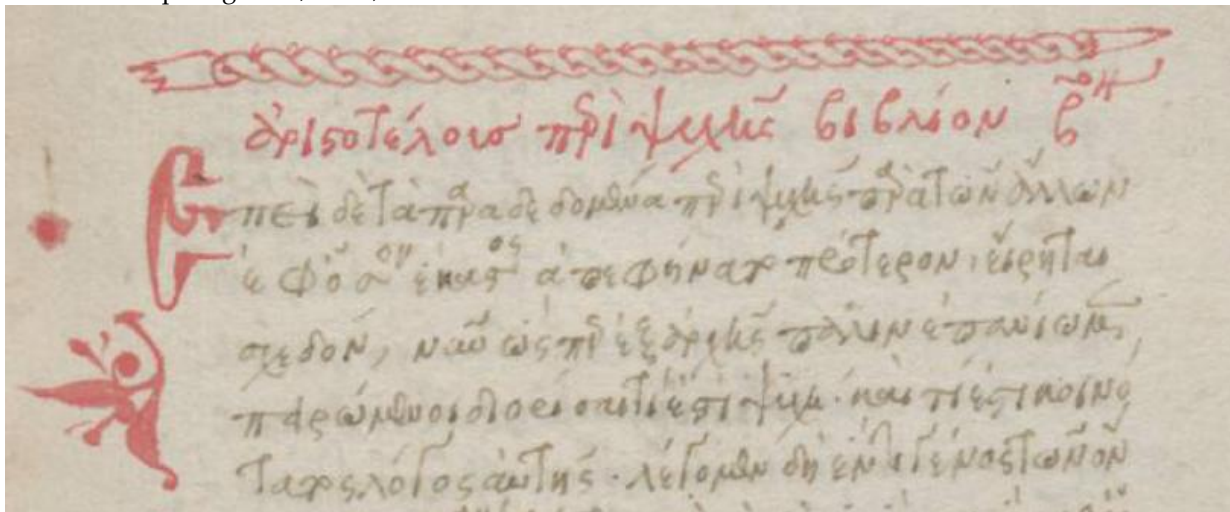 ἀριστοτέλους περὶ ψυχῆς βιβλίον β
Ἐπεὶ δὲ τὰ παραδεδομένα περὶ ψυχῆς παρὰ τῶν ἄλλων
ἐφ' ὅσον ἕκαστος ἀπεφήνατο πρότερον, εἴρηται
σχεδόν, νῦν ὥσπερ ἐξ ἀρχῆς πάλιν ἐπανίωμεν,
πειρώμενοι διορίσαι τί ἐστι ψυχή· καὶ τίς ἐστι κοινό
τατος λόγος αὐτῆς· λέγομεν δὴ ἕν τι γένος τῶν ὄν